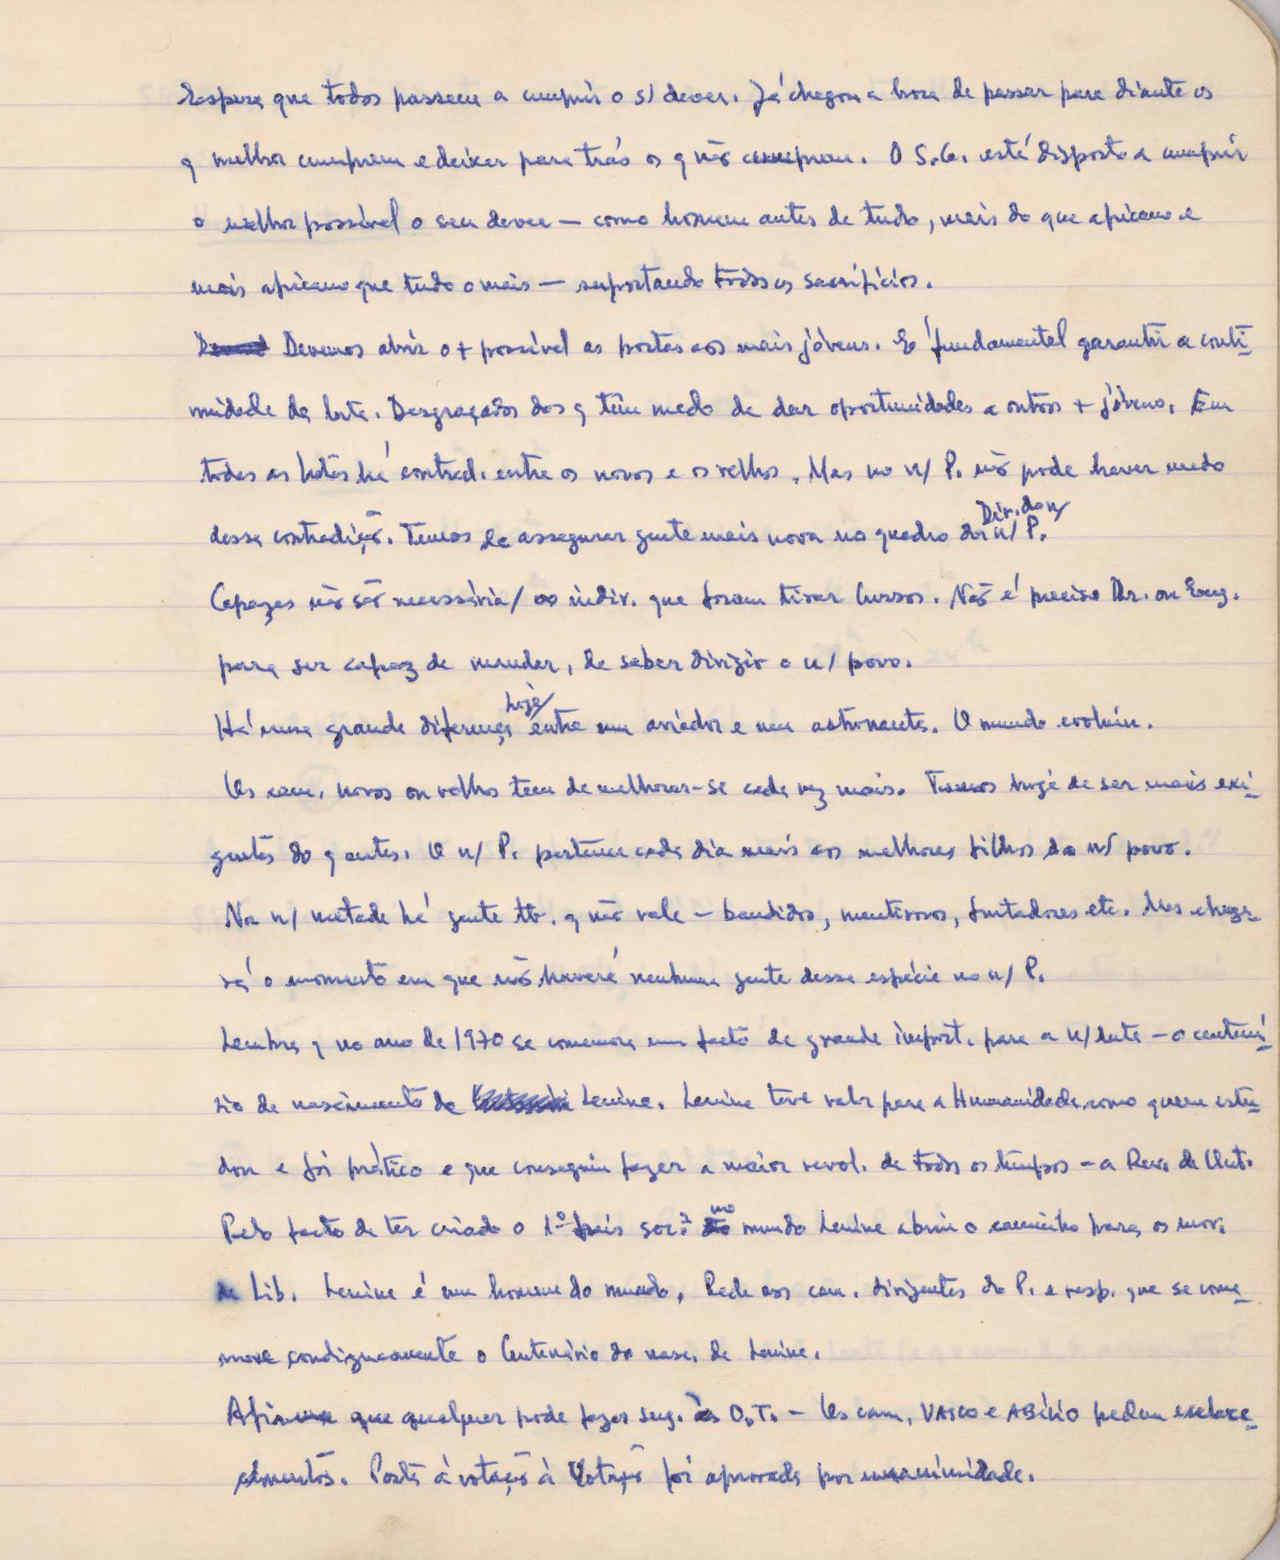 Espera que todos passem a cumprir o s/ dever. Já chegou a hora de passar para diante os
q melhor cumprem e deixar para trás os q não cumprem. O S.G. está disposto a cumprir
o melhor possível o seu dever — como homem antes de tudo, mais do que africano e
mais africano que tudo o mais — suportando todos os sacrifícios.
Devemos abrir o + possível as portas aos mais jóvens. É fundamental garantir a conti-
nuidade da luta. Desgraçados dos q têm medo de dar oportunidades a outros + jóvens. Em
todas as lutas há contrad. entre os novos e os velhos. Mas no n/ P. não pode haver medo
dessa contradição. Temos de assegurar gente mais nova no quadro da Dir. do n/ P.
Capazes não são necessária/ os indiv. que foram tirar Cursos. Não é preciso Dr. ou Eng.
para ser capaz de mandar, de saber dirigir o n/ povo.
Há uma grande diferença hoje entre um aviador e um astronauta. O mundo evoluiu.
Os cam. novos ou velhos tem de melhorar-se cada vez mais. Temos hoje de ser mais exi-
gentes do q antes. O n/ P. pertence cada dia mais aos melhores filhos do n/ povo.
Na n/ metade há gente tb. q não vale — bandidos, mentirosos, furtadores etc. Mas chega-
rá o momento em que não haverá nenhuma gente dessa espécie no n/ P.
Lembra q no ano de 1970 se comemora um facto de grande import. para a n/ luta — o centená-
rio de nascimento de Lenine. Lenine teve valor para a Humanidade como quem estu-
dou e foi prático e que conseguiu fazer a maior revol. de todos os tempos — a Rev. de Out.
Pelo facto de ter criado o 1º país soc. no mundo Lenine abriu o caminho para os mov.
de Lib. Lenine é um homem do mundo. Pede aos cam. dirigentes do P. e resp. que se come-
more condignamente o Centenário do nasc. de Lenine.
Afirma que qualquer pode fazer sug. às O.T. — Os cam. VASCO e ABÍLIO pedem esclare-
cimentos. Posta à votação foi aprovada por unanimidade.